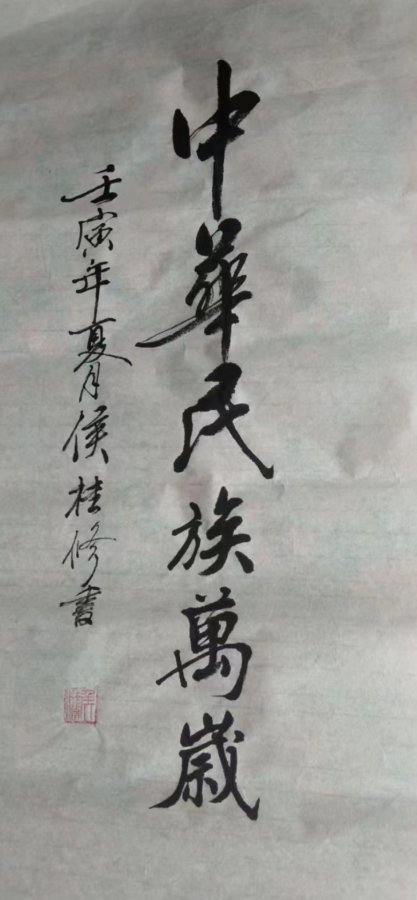 中華民族萬歲
壬寅年夏月侯桂修書